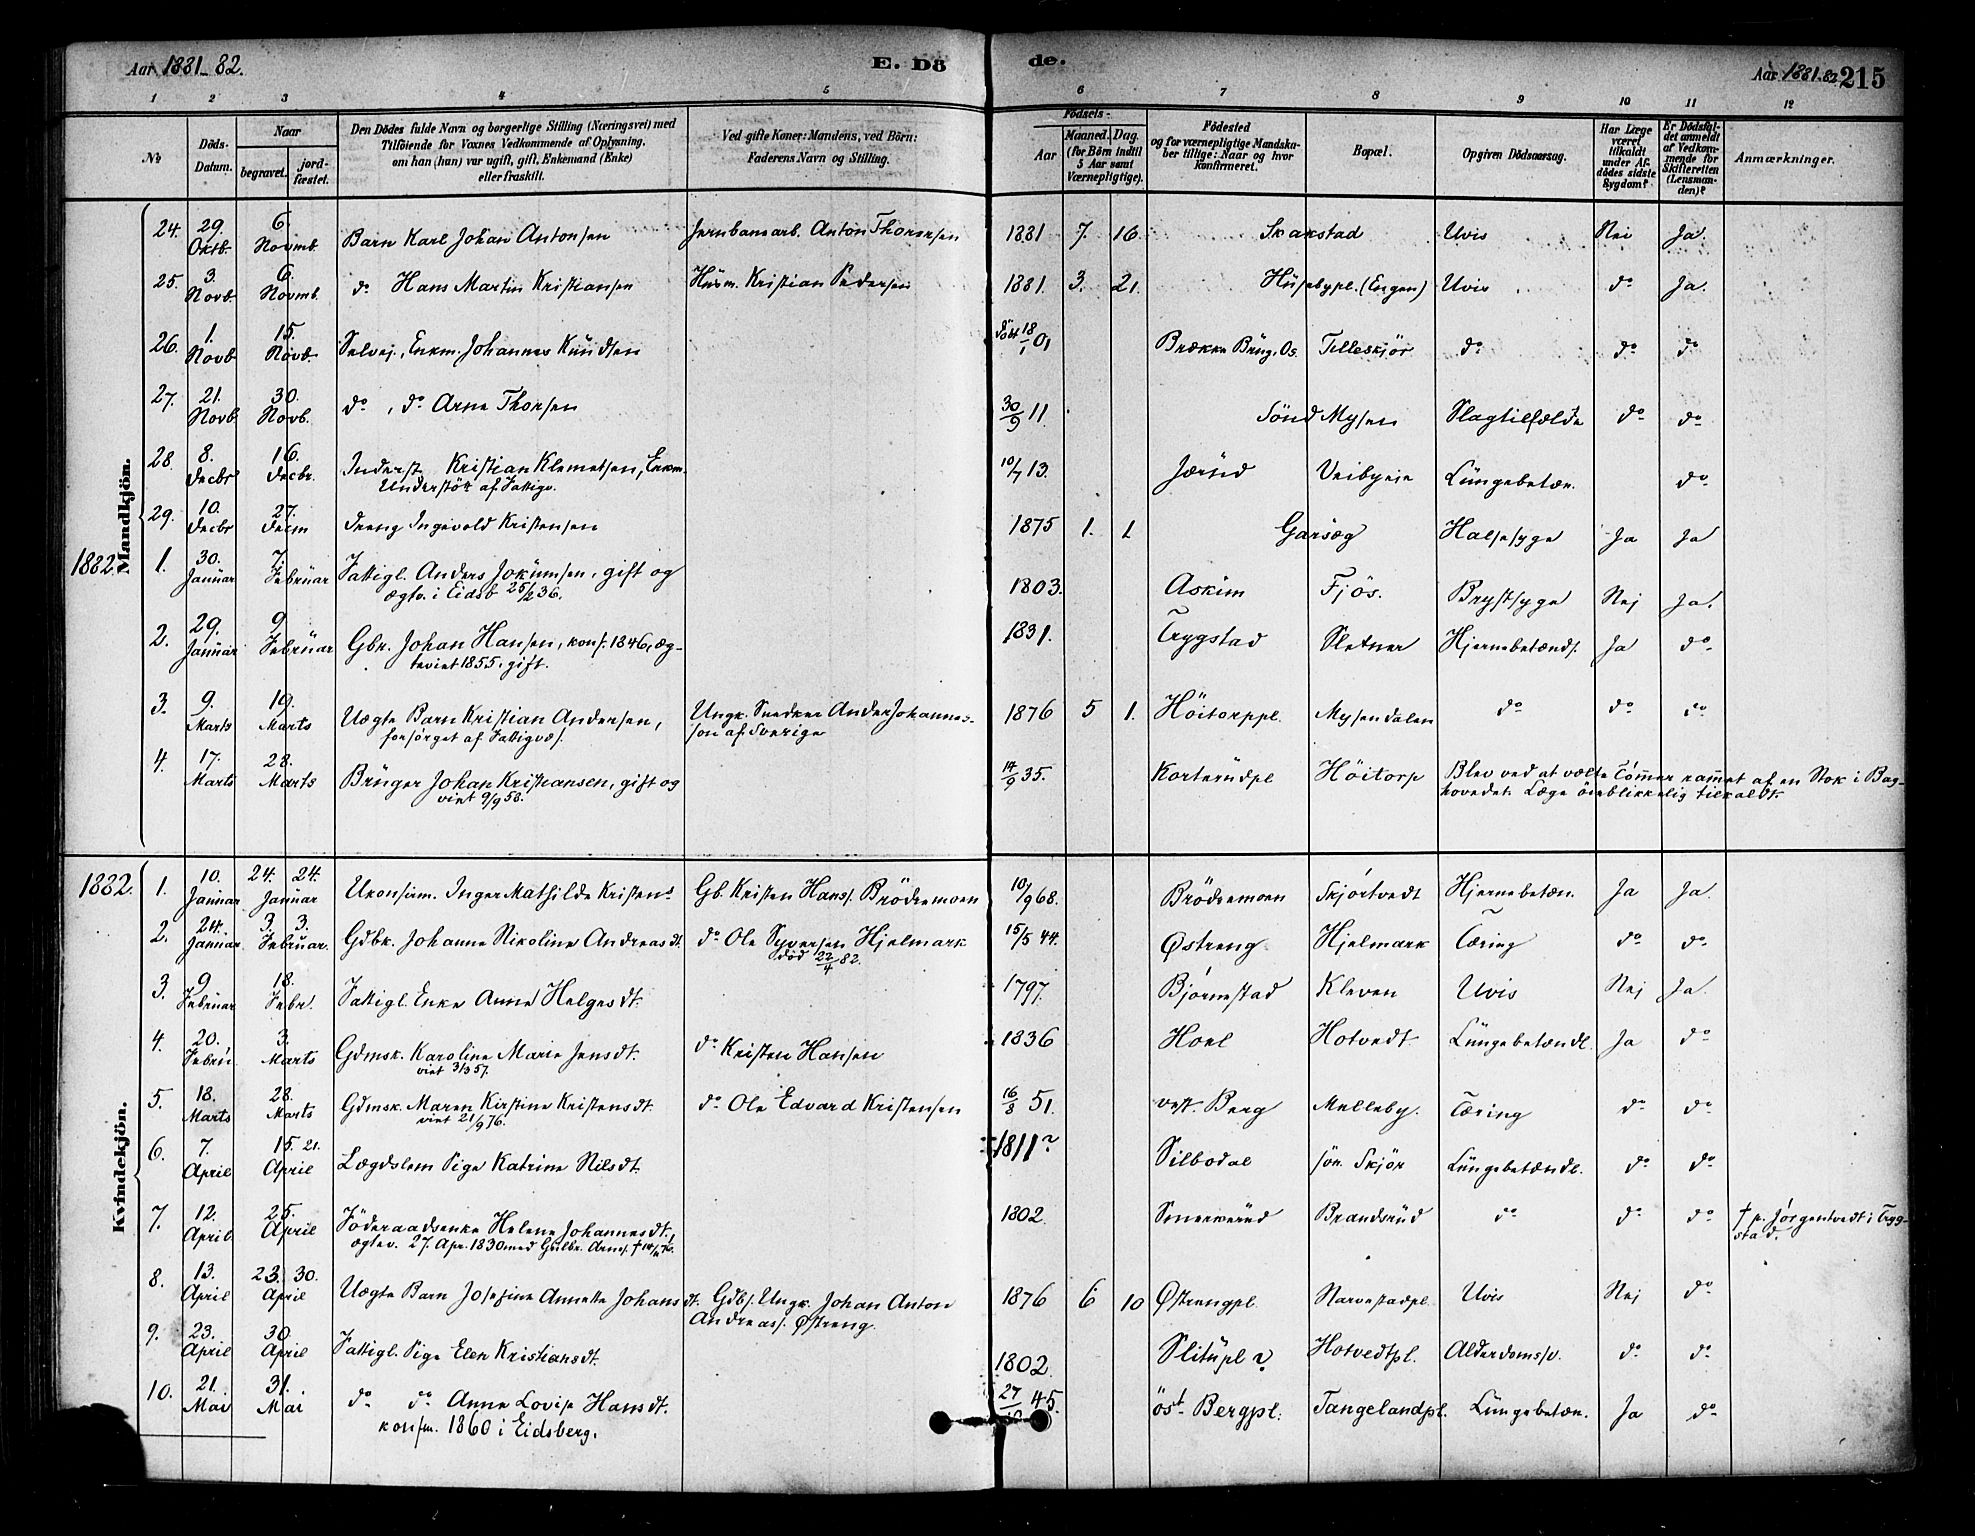 Aar 1881-82.
E. Dö
de.
Aar 1881-82 215
1 2 3 4 5 6 7 8 9 10 11 12
No
Döds-Datum.
Naar
begravet.
jord-fæstet.
Den Dödes fulde Navn og borgerlige Stilling (Næringsvei) med
Tilföiende for Voxnes Vedkommende af Oplysning,
om han (hun) var ugift, gift, Enkemand (Enke)
eller fraskilt.
Ved gifte Koner: Mandens, ved Börn:
Faderens Navn og Stilling.
Födsels-
Aar
Maaned. Dag.
(for Börn indtil
5 Aar samt
Værnepligtige).
Födested
og for værnepligtige Mandska-
ber tillige: Naar og hvor
konfirmeret.
Bopæl.
Opgiven Dödsaarsag.
Har Læge
været
tilkaldt
under Af-
dödes sidste
Sygdom?
Er Dödsfal-
det anmeldt
af Vedkom-
mende for
Skifteretten
(Lensman-
den)?
Anmærkninger.
Mandkjön.
24. 29. Oktb. 6. Novmb. Barn Karl Johan Antonsen Jernbanearb. Anton Thoresen 1881 7. 16. Skakstad Uvis Nei Ja.
25. 3. Novb. 6. Novmb. do Hans Martin Kristiansen Husm. Kristian Pedersen 1881. 3. 21. Husebypl. (Engen) Uvis do Ja.
26. 1. Novb 15. Novb. Selvej., Enkm. Johannes Knudsen döbt 18/1 01 Brække Brug, Os. Tilleskjör do do do
27. 21. Novb. 30. Novb. do, do Arne Thorsen 30/9 11. Sönd Mysen Slagtilfælde do do
28. 8. Decbr 16. Decbr. Inderst Kristian Klemetsen, Enkm.
Understöt. af Fattigv. 10/7 13. Jærud Veibyeie Lungebetæn. do
29. 10. Decbr 27. Decm Dreng Ingevold Kristensen 1875 1. 1 Garseg Halssyge Ja Ja
1882. 1. 30. Januar 7. Februar Fattigl. Anders Jokumsen, gift og
ægtv. i Eidsb 25/2 36. 1803. Askim Fjös. Brystsyge Nej Ja.
2. 29. Januar 9 Februar Gbr. Johan Hansen, konf. 1846, æg-
teviet 1855, gift. 1831. Trygstad Sletner Hjernebetænds. Ja do
3. 9. Marts 19. Marts Uægte Barn Kristian Andersen,
forsörget af Fattigvæs. Ungk. Snedker Ander Johannes-
son af Sverige 1876 5 1. Höitorppl. Mysendalen do do do
4. 17. Marts 28. Marts Bruger Johan Kristiansen, gift og
viet 9/9 58. 14/9 35. Korterudpl Höitorp Blev ved at vælte Tömmer rammet af en Stok i Bag-
hovedet. Læge öieblikkelig tilkaldt.
Kvindekjön.
1882. 1. 10. Januar 24. 24. Januar Ukonfirm. Inger Mathilde Kristens Gb. Kristen Hans. Brödremoen 10/9 68. Brödremoen Skjörtvedt Hjernebetæn. Ja Ja.
2. 24. Januar. 3. 3. Februar. Gdbk. Johanne Nikoline Andreasdt. do Ole Syversen Hjelmark
död 22/4 82. 15/5 44. Østreng Hjelmark Tæring do do
3. 9 Februar 18. Febr. Fattigl. Enke Anne Helgesdt. 1797. Bjørnestad Kleven Uvis Nej Ja.
4. 20. Febru. 3. Marts Gdmsk. Karoline Marie Jensdt.
viet 3/3 57. do Kristen Hansen 1836 Hoel Hotvedt Lungebetændl. Ja do
5. 18. Marts 28. Marts Gdmsk. Maren Kirstine Kristensdt.
viet 21/9 76. do Ole Edvard Kristensen 16/8 51. vest. Berg Melleby. Tæring do do
6. 7. April 15. 21. April Lægdslem Pige Katrine Nilsdt. 1811? Silbodal sön. Skjör Lungebetændl. do do
7. 12. April 25. April Föderaadsenke Helene Johannesdt.,
ægtev. 27. Apr. 1830 med Gulbr. Arnes. 1802. Smerverud Brandsrud do do do † p. Jörgentvedt i Tryg-
stad.
8. 13. April 23. 30. April Uægte Barn Josefine Annette Johansdt. Gdbs. Ungk. Johan Anton
Andreass. Østreng. 1876 6 10 Østrengpl. Narvestadpl. Uvis Nej do
9. 23. April 30. April Fattigl. Pige Elen Kristiansdt. 1802. Slitupl? Hotvedtpl. Alderdomssv. do do
10. 21. Mai 31. Mai do do Anne Lovise Hansdt.
konfm. 1860 i Eidsberg. 27/10 45. öst Bergpl. Tangelandpl. Lungebetæn. Ja do